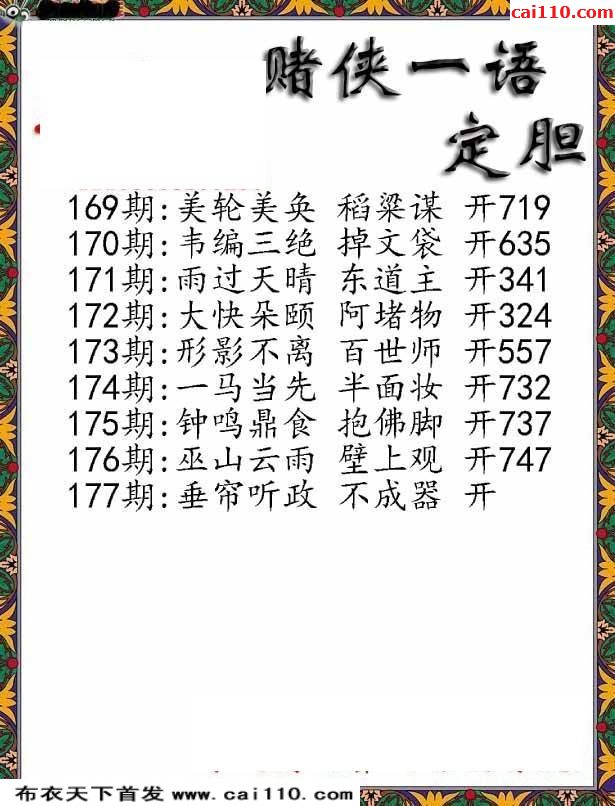 cai110.com
赌侠一语
定胆
169期:美轮美奂 稻粱谋 开719
170期:韦编三绝 掉文袋 开635
171期:雨过天晴 东道主 开341
172期:大快朵颐 阿堵物 开324
173期:形影不离 百世师 开557
174期:一马当先 半面妆 开732
175期:钟鸣鼎食 抱佛脚 开737
176期:巫山云雨 壁上观 开747
177期:垂帘听政 不成器 开
布衣天下首发 www.cai110.com